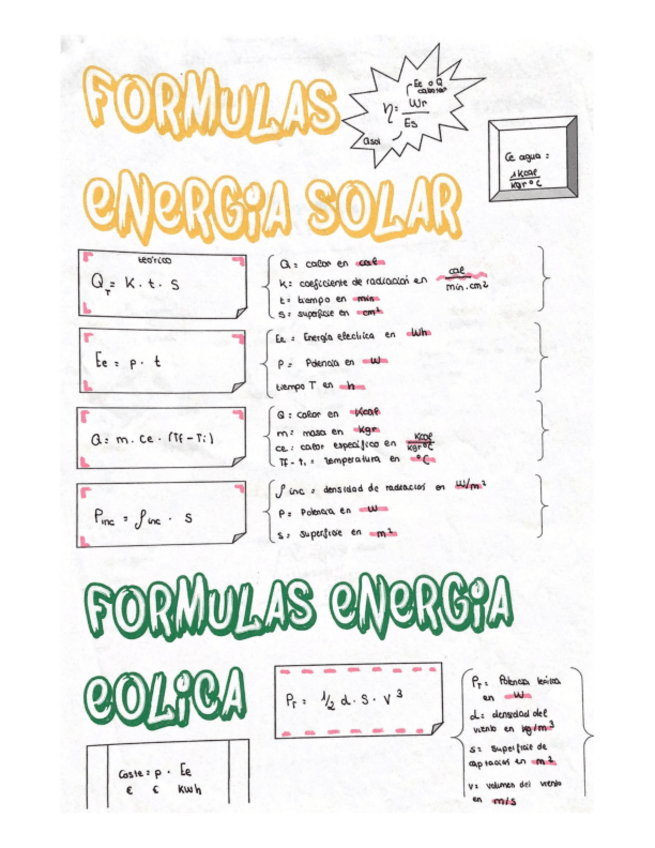 FORMULAS
Ee o Q
calentar
η = Wr
Es
Qsol
Ce agua =
1Kcal
kgr ºC
ENERGIA SOLAR
teórico
QT = K · t · S
Q = calor en cal
K = coeficiente de radiación en cal
min.cm2
t = tiempo en min
S = superficie en cm²
Ee = p · t
Ee = Energía eléctrica en Wh
P = Potencia en W
tiempo T en h
Q = m · ce · (Tf - Ti)
Q = calor en Kcal
m = masa en kgr
ce = calor específico en Kcal
kgr ºC
Tf - ti = temperatura en ºC
Pinc = ρinc · S
ρ inc = densidad de radiación en W/m²
P = Potencia en W
S = superficie en m²
FORMULAS ENERGIA
EOLICA
PT = 1/2 d · S · V³
PT = Potencia teórica
en W
d = densidad del
viento en kg/m³
S = superficie de
captación en m²
V = volumen del viento
en m/s
Coste = p · Ee
€ € kwh